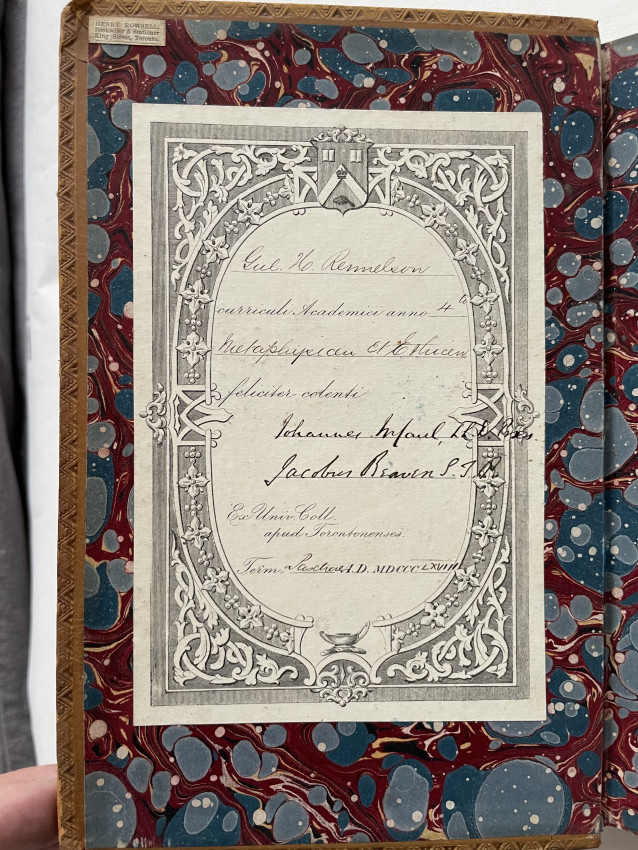 HENRY ROWSELL,
Bookseller & Stationer
King Street, Toronto.
Gul. H. Rennelson
curriculi Academici anno 4to
Metaphysicam Et Ethicen
feliciter colenti
Johannes McCaul, LL.D. Præs.
Jacobus Beaven S.T.P.
Ex Univ. Coll.
apud Torontonenses.
Term. Paschae A.D. MDCCC LXVIII